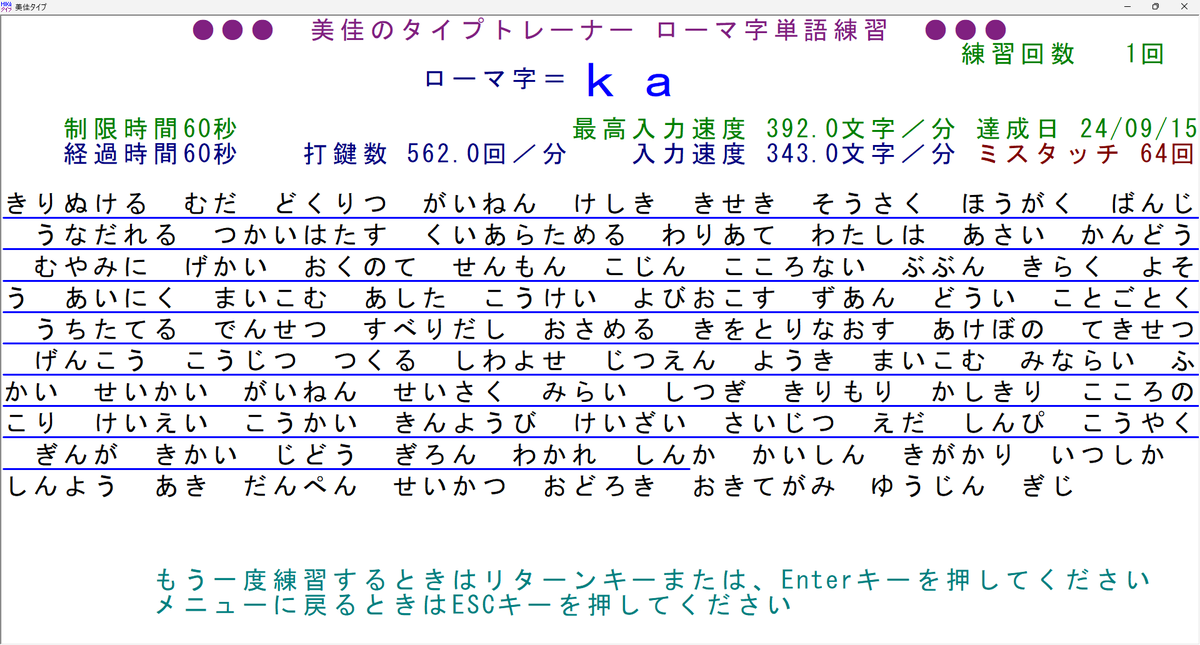 MIKA タイプ 美佳タイプ
●●● 美佳のタイプトレーナー ローマ字単語練習 ●●●
練習回数 1回
ローマ字＝ ｋａ
制限時間60秒 最高入力速度 392.0文字／分 達成日 24/09/15
経過時間60秒 打鍵数 562.0回／分 入力速度 343.0文字／分 ミスタッチ 64回
きりぬける むだ どくりつ がいねん けしき きせき そうさく ほうがく ばんじ
うなだれる つかいはたす くいあらためる わりあて わたしは あさい かんどう
むやみに げかい おくのて せんもん こじん こころない ぶぶん きらく よそ
う あいにく まいこむ あした こうけい よびおこす ずあん どうい ことごとく
うちたてる でんせつ すべりだし おさめる きをとりなおす あけぼの てきせつ
げんこう こうじつ つくる しわよせ じつえん ようき まいこむ みならい ふ
かい せいかい がいねん せいさく みらい しつぎ きりもり かしきり こころの
こり けいえい こうかい きんようび けいざい さいじつ えだ しんぴ こうやく
ぎんが きかい じどう ぎろん わかれ しんか かいしん きがかり いつしか
しんよう あき だんぺん せいかつ おどろき おきてがみ ゆうじん ぎじ
もう一度練習するときはリターンキーまたは、Enterキーを押してください
メニューに戻るときはESCキーを押してください